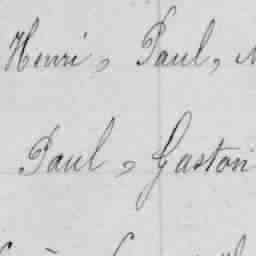 Henri, Paul,
Paul, Gaston